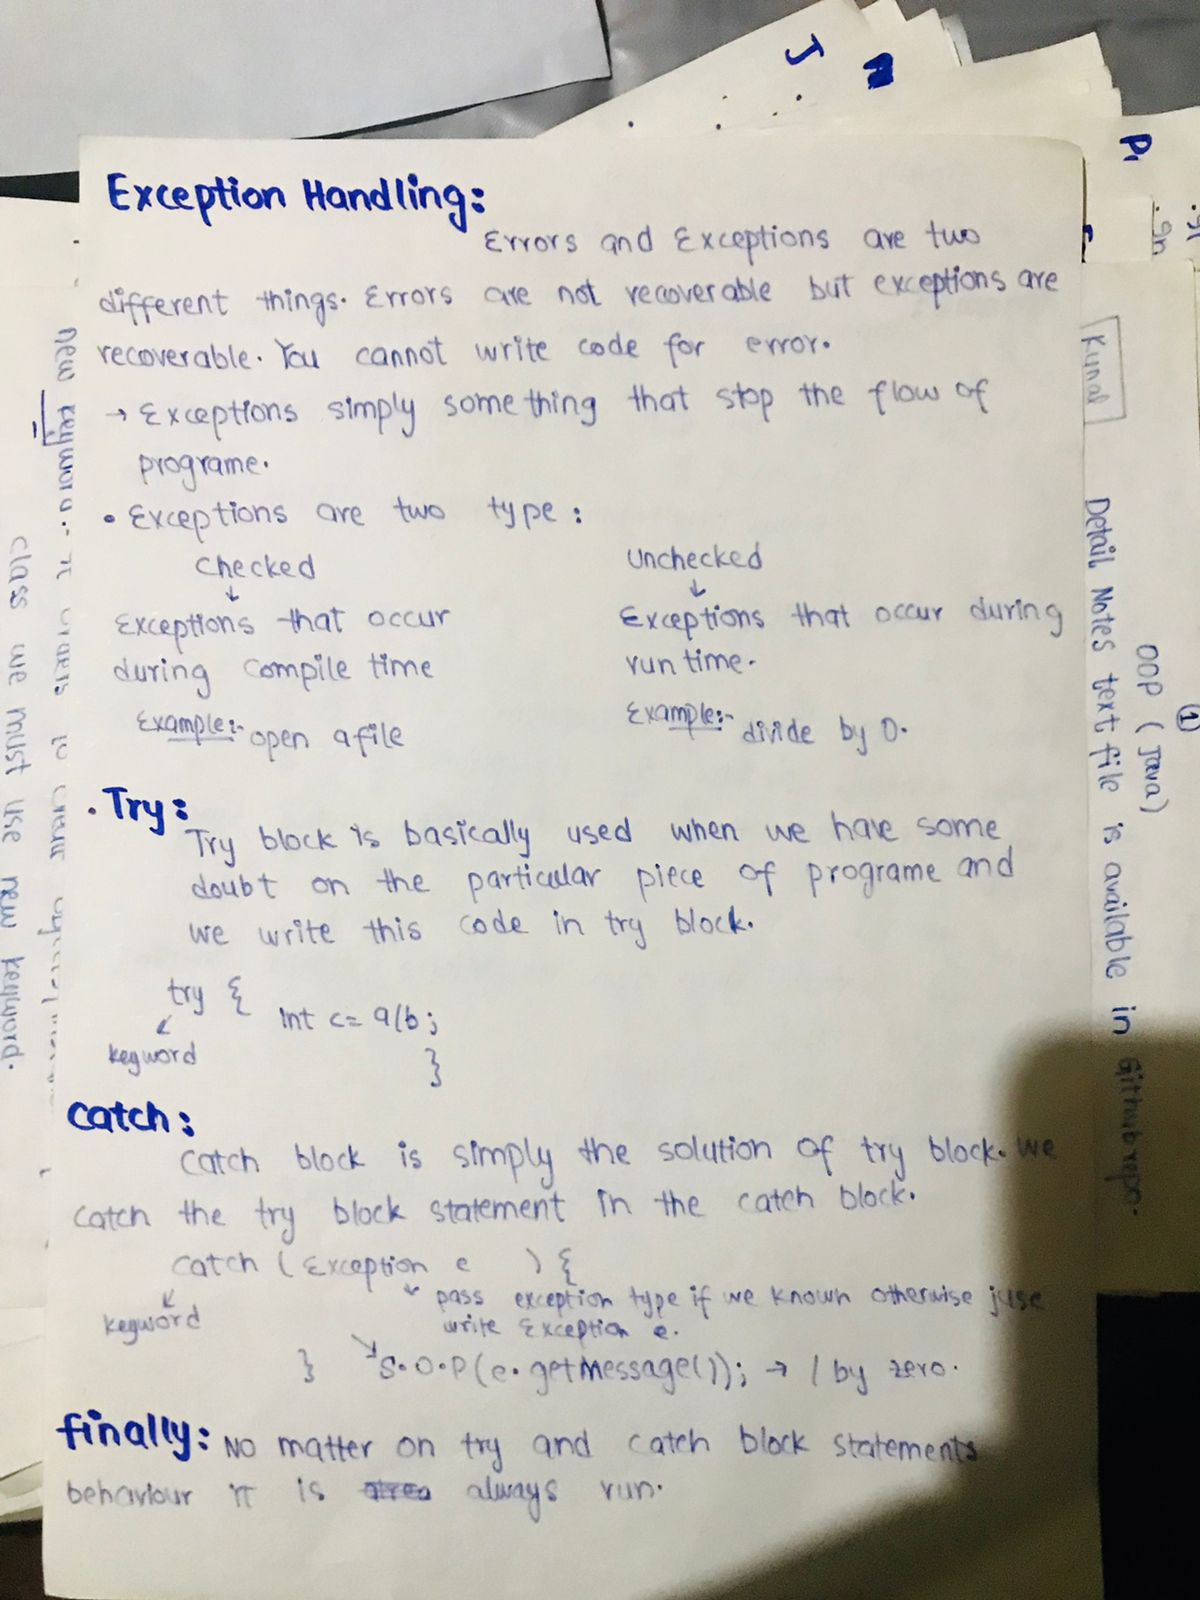 Exception Handling:
Errors and Exceptions are two
different things. Errors are not recoverable but exceptions are
recoverable. You cannot write code for error.
→ Exceptions simply something that stop the flow of
programe.
• Exceptions are two type :
Checked
Unchecked
↓
↓
Exceptions that occur
during compile time
Exceptions that occur during
run time.
Example:- open a file
Example:- divide by 0.
• Try:
Try block is basically used when we have some
doubt on the particular piece of programe and
we write this code in try block.
try {
int c= a/b;
keyword
}
catch:
catch block is simply the solution of try block. We
catch the try block statement in the catch block.
catch ( Exception e ) {
pass exception type if we known otherwise juse
write Exception e.
keyword
} S.O.P(e.getMessage()); → / by zero.
finally: No matter on try and catch block statements
behaviour it is always run.
J
N
P
Kunal
Detail Notes text file is available in Github repo.
OOP (Java)
1
new keyword
class we must use new keyword.